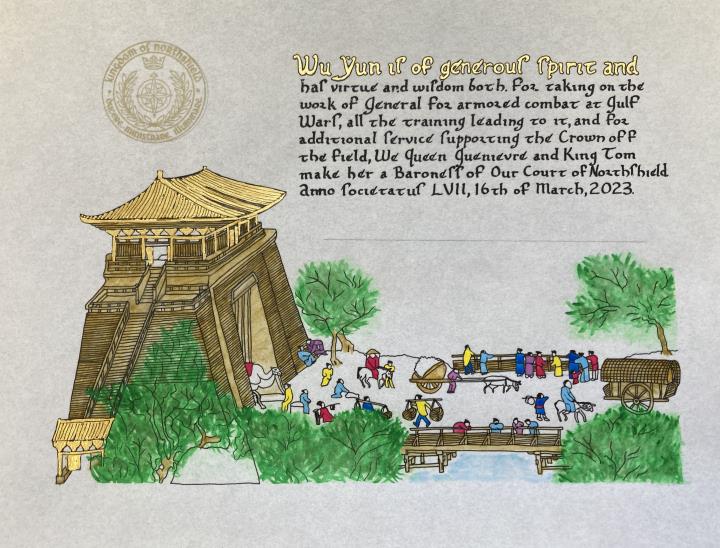 Kingdom of Northshield
Wu Yun is of generous spirit and
has virtue and wisdom both. For taking on the
work of General for armored combat at Gulf
Wars, all the training leading to it, and for
additional service supporting the Crown off
the field, We Queen Guenievre and King Tom
make her a Baroness of Our Court of Northshield
Anno Societatus LVII, 16th of March, 2023.